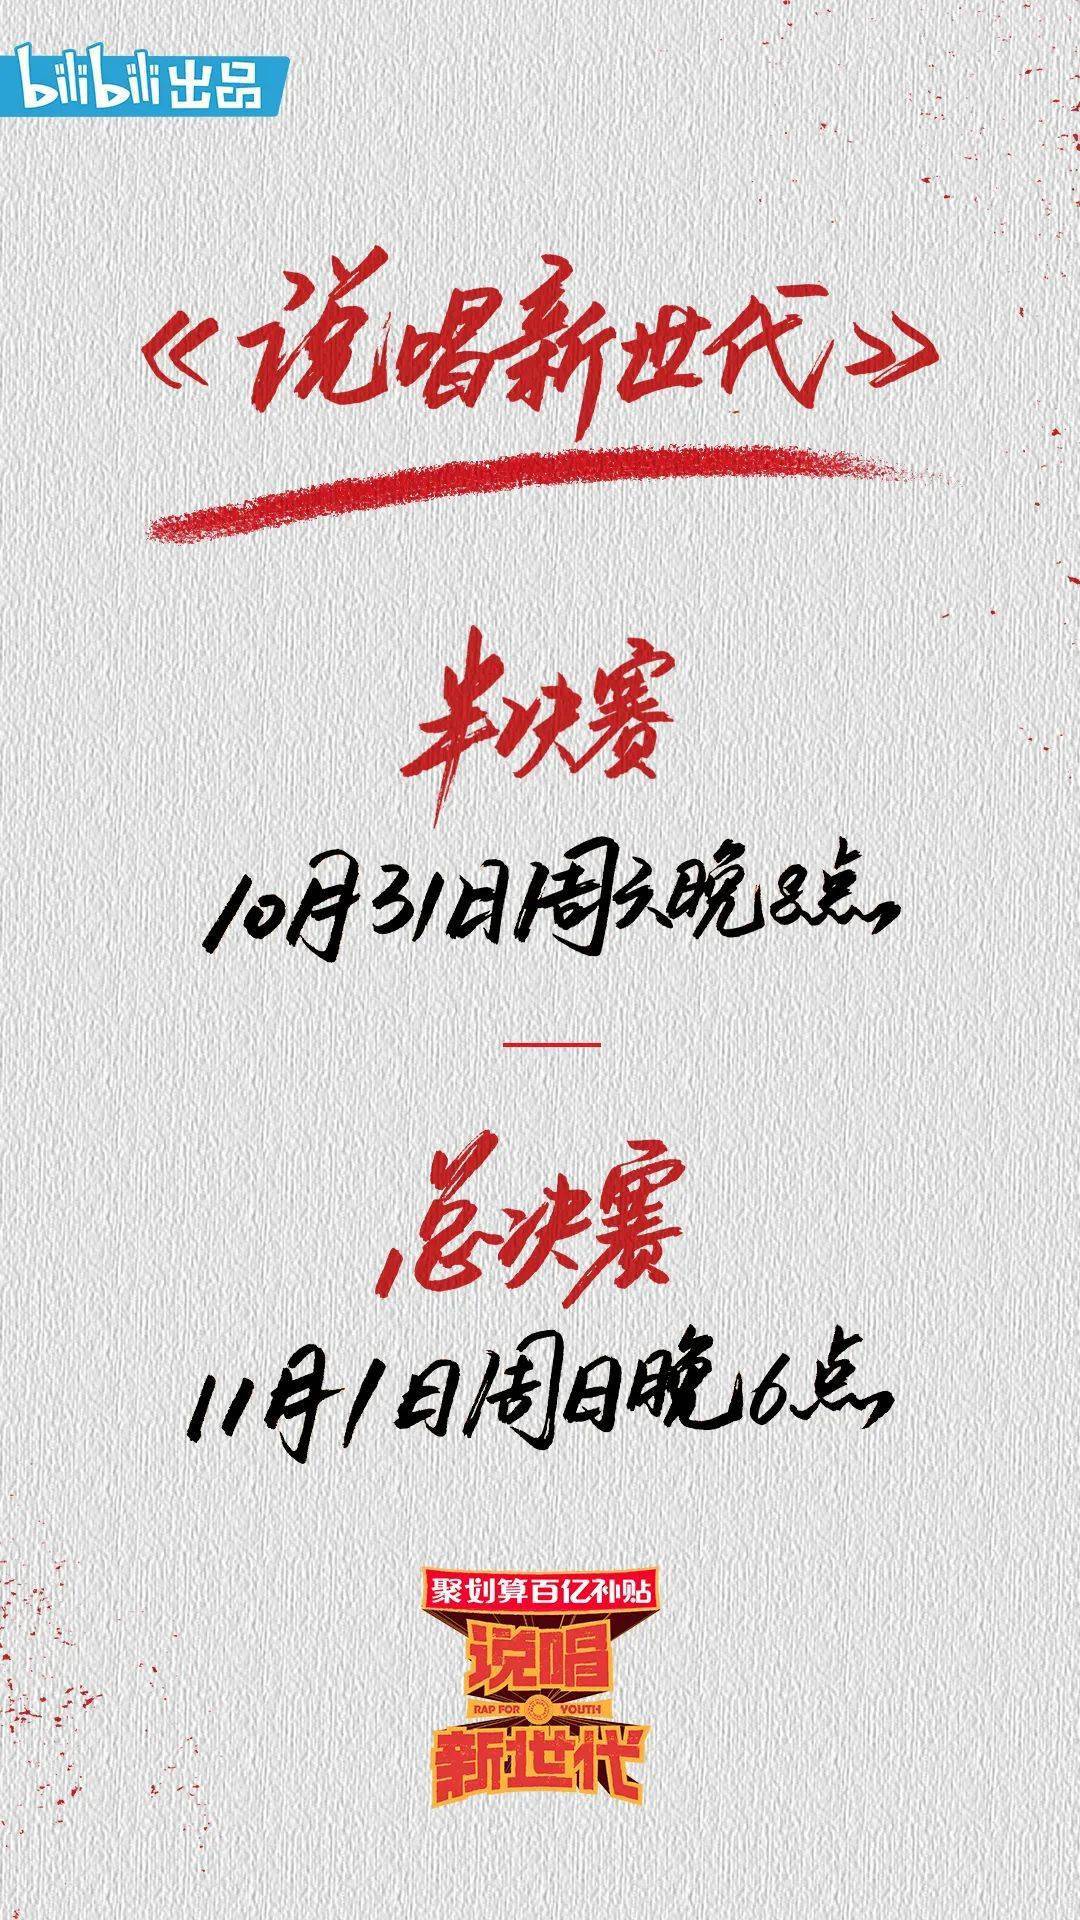 bilibili出品
《说唱新世代》
半决赛
10月31日周六晚8点
总决赛
11月1日周日晚6点
聚划算百亿补贴
说唱
RAP FOR YOUTH
新世代